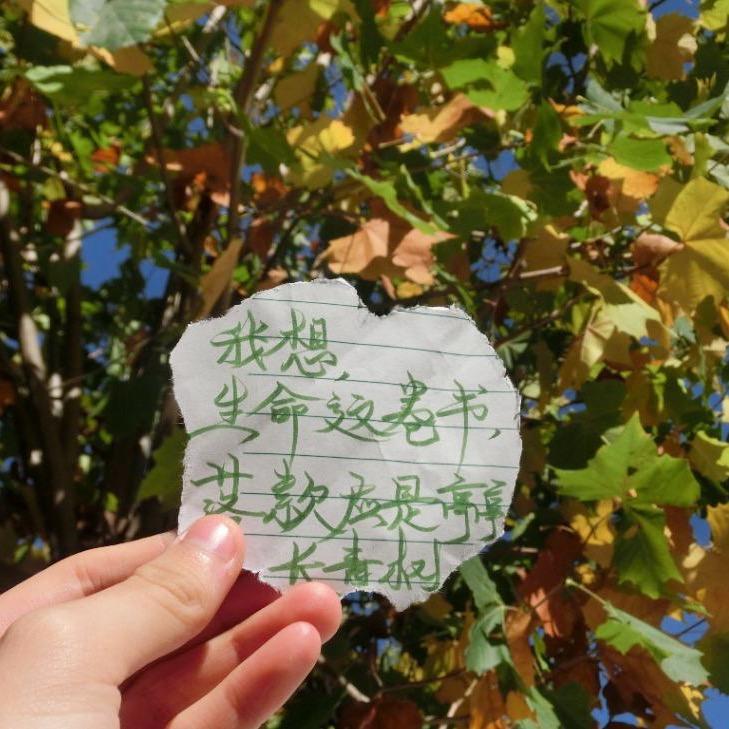 我想，
生命这卷书，
落款应是亭亭
长青树